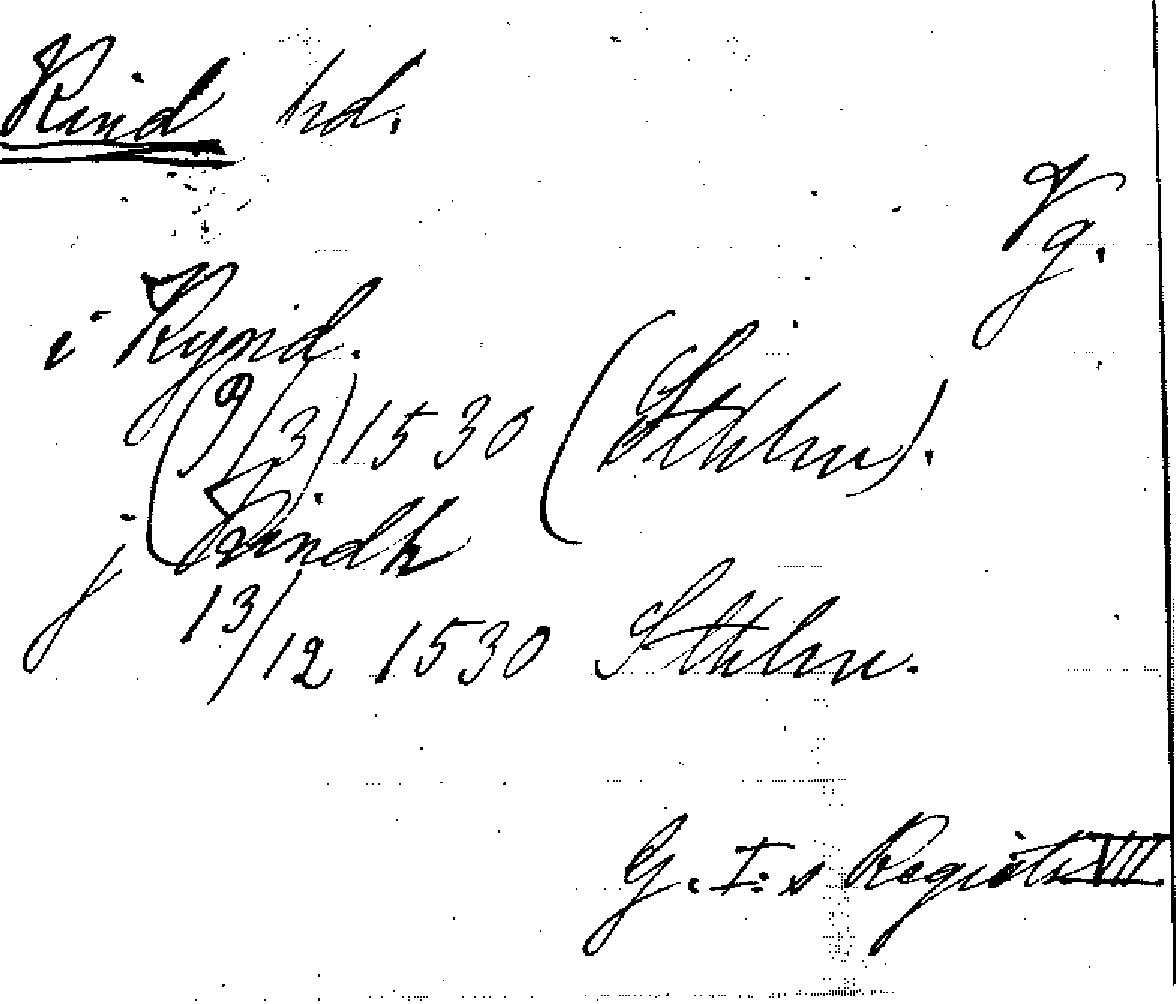 Kind hd.
Vg.
i Kynd.
(9/3) 1530 (Sthlm).
j Kindh
13/12 1530 Sthlm.
G. I:s Registr. VII